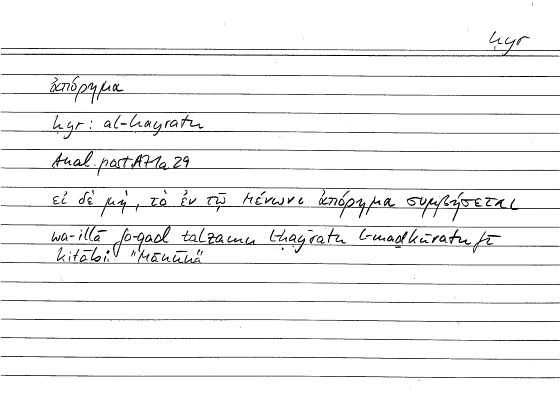 ḥyr
ἀπόρημα
ḥyr : al-ḥayratu
Anal. post A71a 29
εἰ δὲ μή, τὸ ἐν τῷ Μένωνι ἀπόρημα συμβήσεται
wa-illā fa-qad talzamu l-ḥayratu l-maḏkūratu fī
kitābi "Mānūnā"